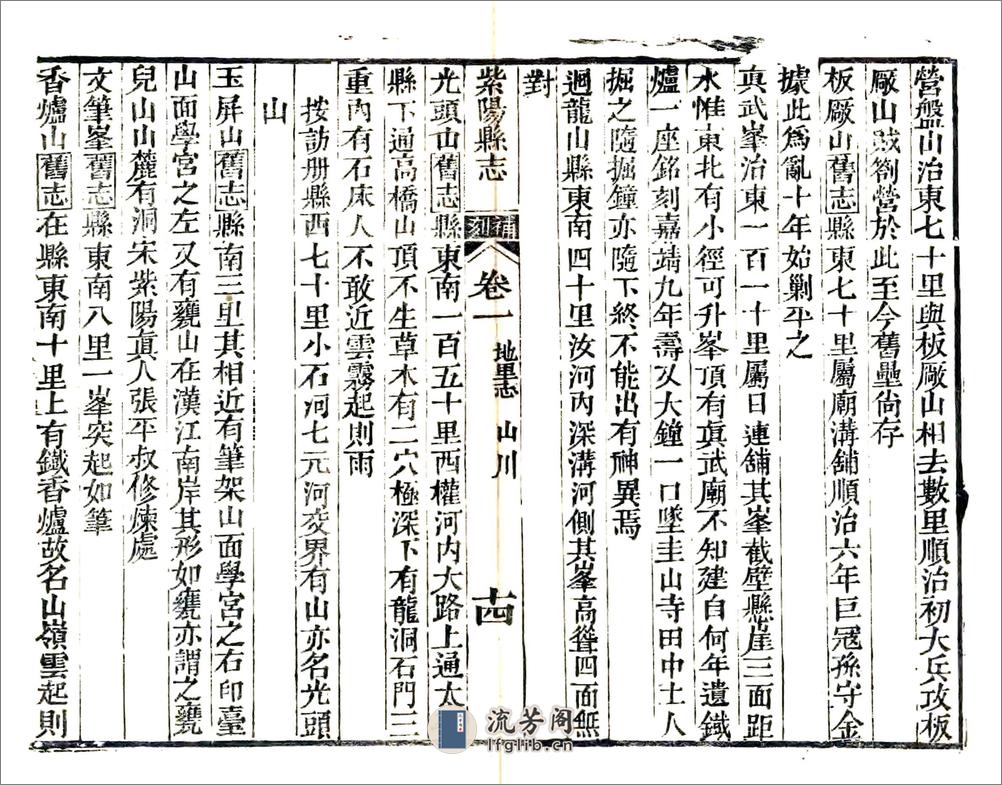 營盤山治東七十里與板厰山相去數里順治初大兵攻板
厰山賊劄營於此至今舊壘尙存
板厰山舊志縣東七十里屬廟溝舖順治六年巨冦孫守金
據此爲亂十年始剿平之
眞武峯治東一百一十里屬日連舖其峯截壁縣崖三面距
水惟東北有小徑可升峯頂有眞武廟不知建自何年遺鐵
爐一座銘刻嘉靖九年壽又大鐘一口墜圭山寺田中土人
掘之隨掘鐘亦隨下終不能出有神異焉
迴龍山縣東南四十里汝河內深溝河側其峯高聳四面無
對
紫陽縣志 補刻 卷一 地里志 山川 十四
光頭山舊志縣東南一百五十里西權河內大路上通太
縣下通高橋山頂不生草木有二穴極深下有龍洞石門三
重內有石床人不敢近雲霧起則雨
按訪册縣西七十里小石河七元河交界有山亦名光頭
山
玉屏山舊志縣南三里其相近有筆架山面學宮之右印臺
山面學宮之左又有甕山在漢江南岸其形如甕亦謂之甕
兒山山麓有洞宋紫陽眞人張平叔修煉處
文筆峯舊志縣東南八里一峯突起如筆
香爐山舊志在縣東南十里上有鐵香爐故名山嶺雲起則
流芳阁
lfglib.cn